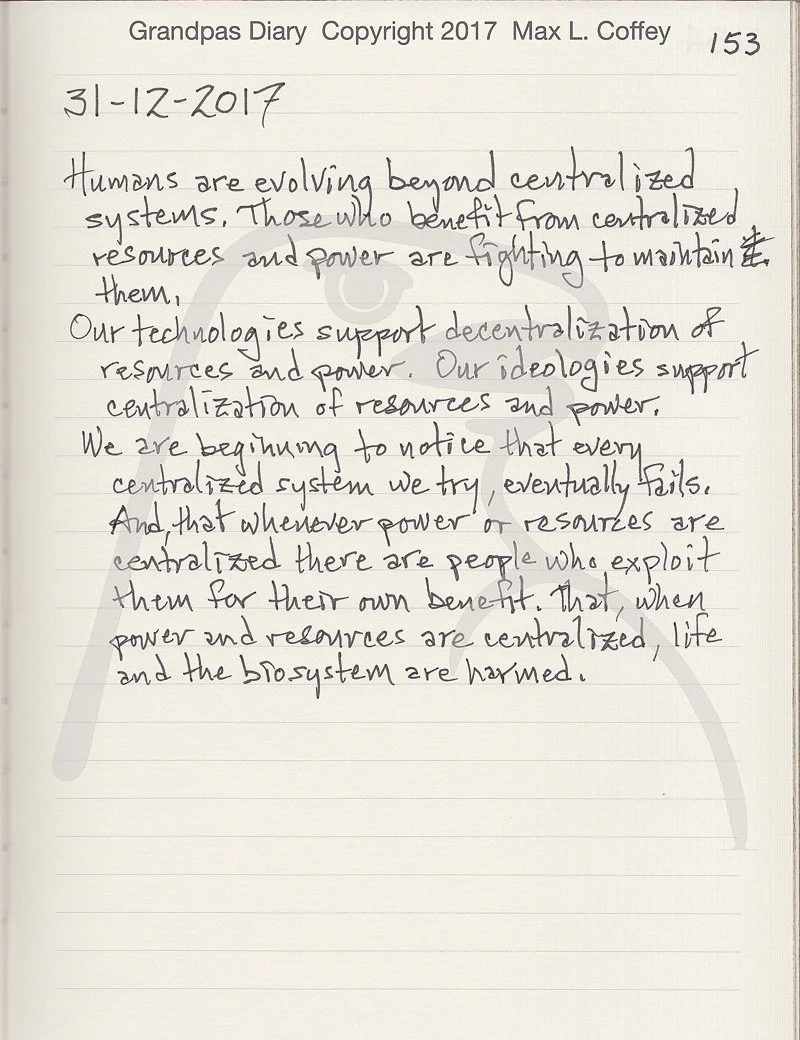 Grandpas Diary Copyright 2017 Max L. Coffey
153
31-12-2017
Humans are evolving beyond centralized
systems. Those who benefit from centralized
resources and power are fighting to maintain
them.
Our technologies support decentralization of
resources and power. Our ideologies support
centralization of resources and power.
We are beginning to notice that every
centralized system we try, eventually fails.
And, that whenever power or resources are
centralized there are people who exploit
them for their own benefit. That, when
power and resources are centralized, life
and the biosystem are harmed.